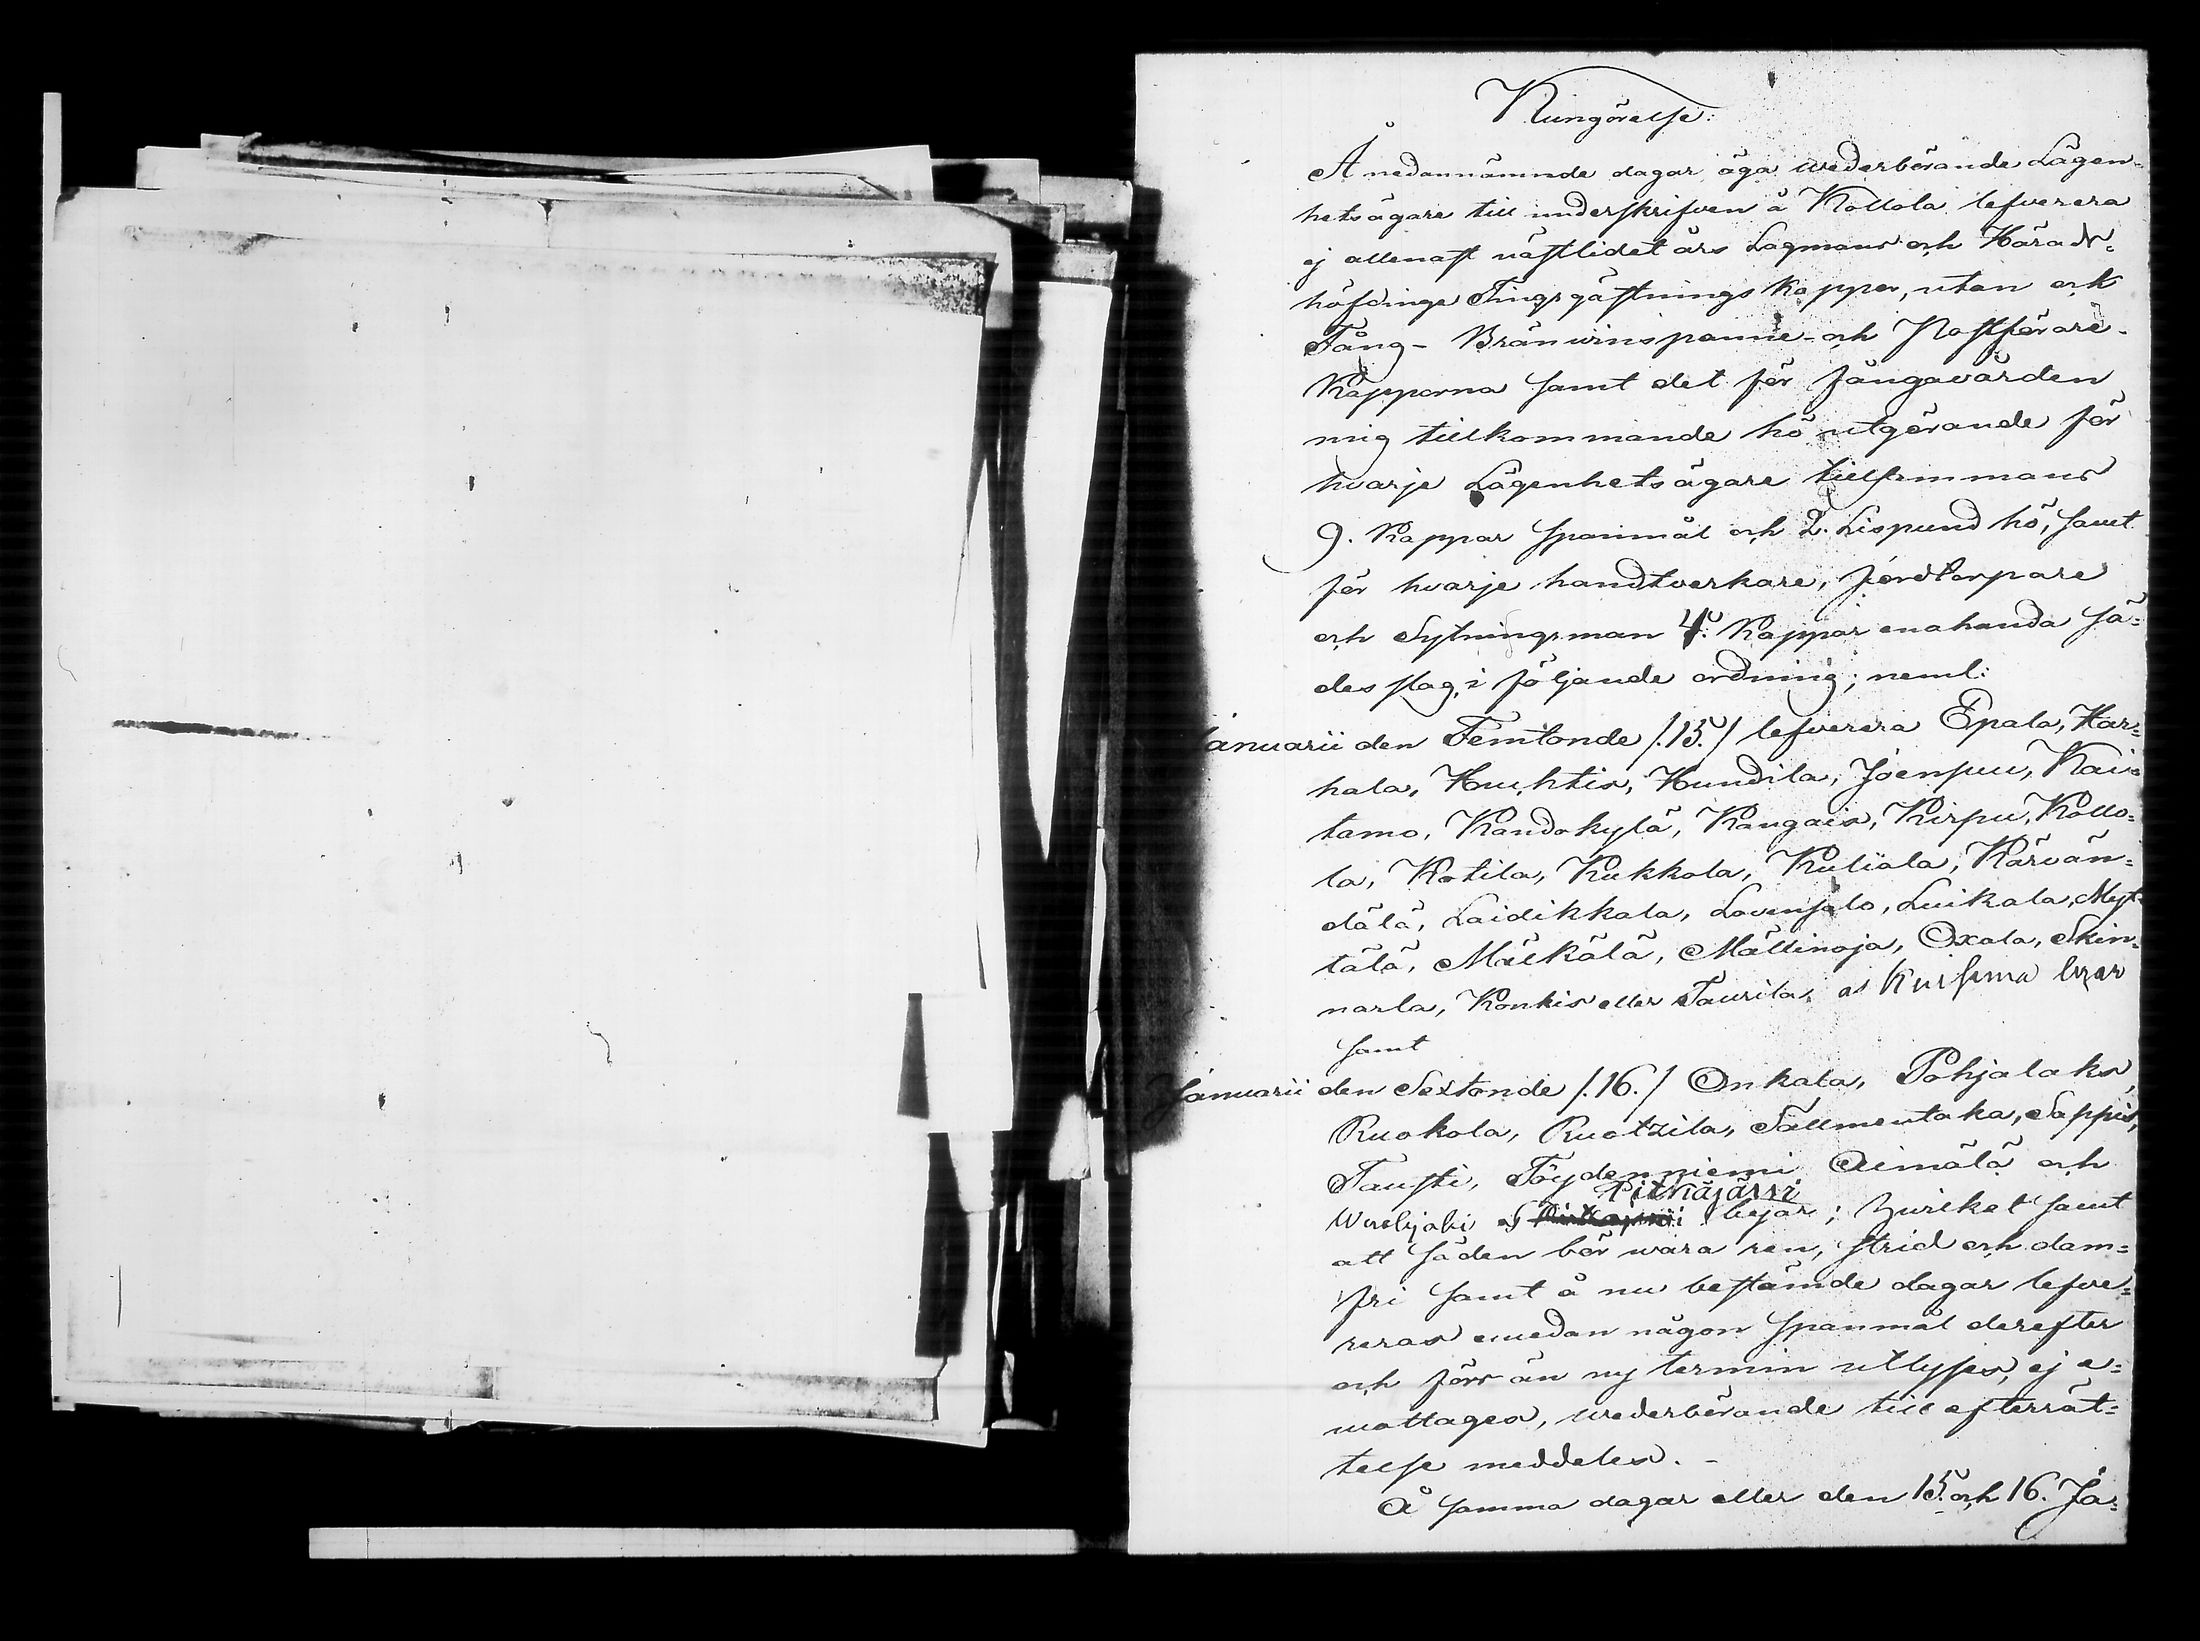 Kungörelse:
Å nedannämnde dagar äga wederbörande Lägen-
hetsägare till underskrifven å Kollola lefverera
ej allenast nästlidet års Lagmans och Härads-
höfdinge Tingsgästnings Kappar, utan ock
Fång- Bränwinspanne- och Postförare-
Kapporna samt det för fångavården
mig tillkommande hö utgörande för
hvarje Lägenhetsägare tillsammans
9. Kappar Spanmål och 2. Lispund hö, samt
för hvarje handtverkare, jordtorpare
och Sytningsman 4. Kappar enahanda Sä=
des slag, i följande ordning; neml:
Januarii den Femtonde /.15./ lefverera Epala, Har=
hala, Huhtis, Hundila, Joenpuu, Kai=
tamo, Kandokylä, Kangais, Kirpu, Kollo=
la, Kotila, Kukkola, Kuliala, Kärvän=
dälä, Laidikkala, Lovensalo, Luikala, Myt-
tälä, Mälkälä, Mällinoja, Oxala, Skin-
narla, Konkis eller Taurila, at Kuisema byar
samt
Januarii den Sextonde /.16./ Onkala, Pohjalaks,
Ruokola, Ruotzila, Sallmentaka, Sappis,
Tausti, Töydenniemi Äimälä och
Pitkäjärvi
byar; hvilket samt
att säden bör wara ren, strid och dam=
fri samt å nu bestämde dagar lefve=
reras emedan någon Spanmål derefter
och förr än ny termin utlyses, ej e=
mottages, wederbörande till efterrät=
telse meddeles. -
Å samma dagar eller den 15. och 16. Ja=